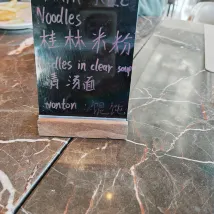 Noodles
桂林米粉
Noodles in clear soup
清汤面
wonton · 馄饨